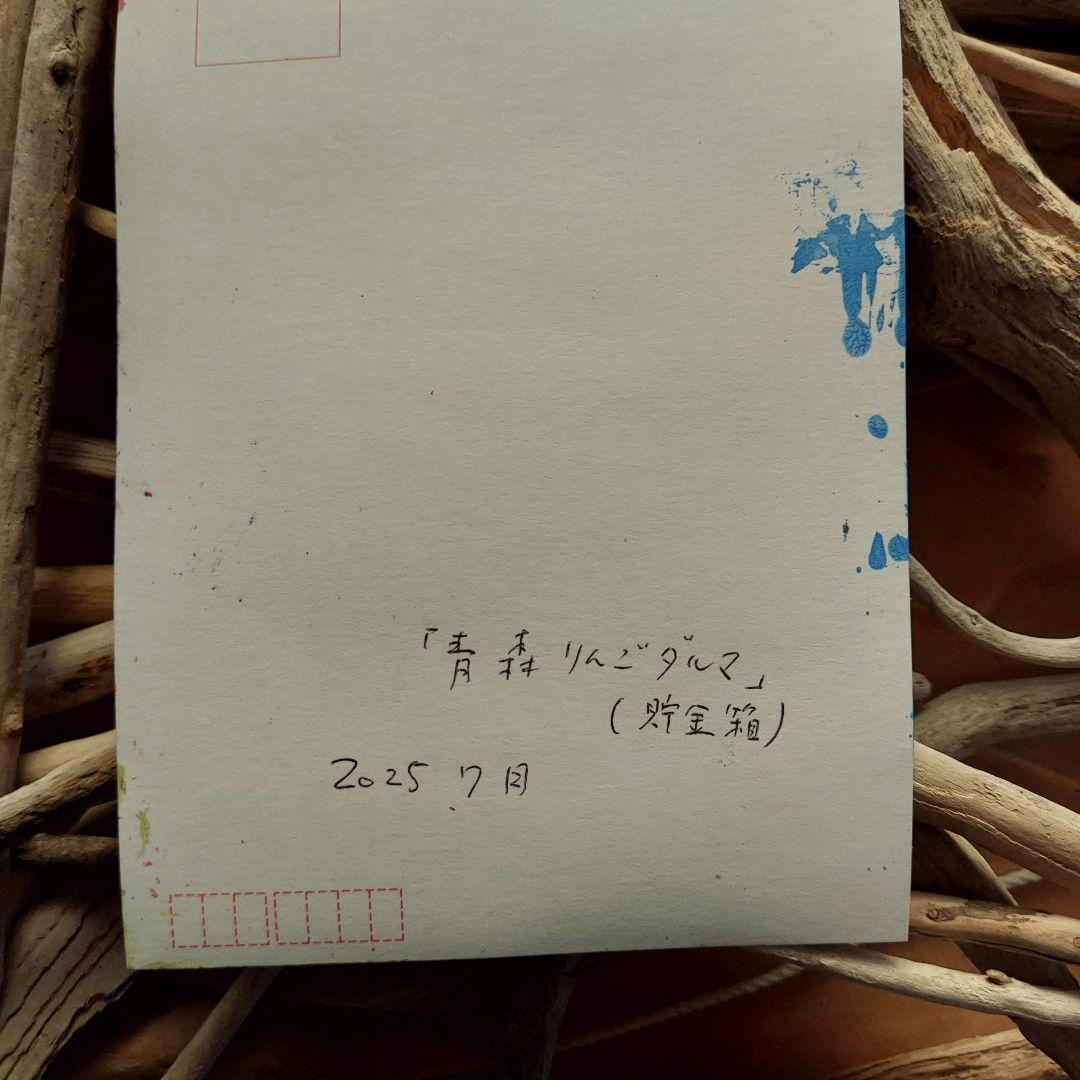 「青森りんごダルマ」
(貯金箱)
2025.7月